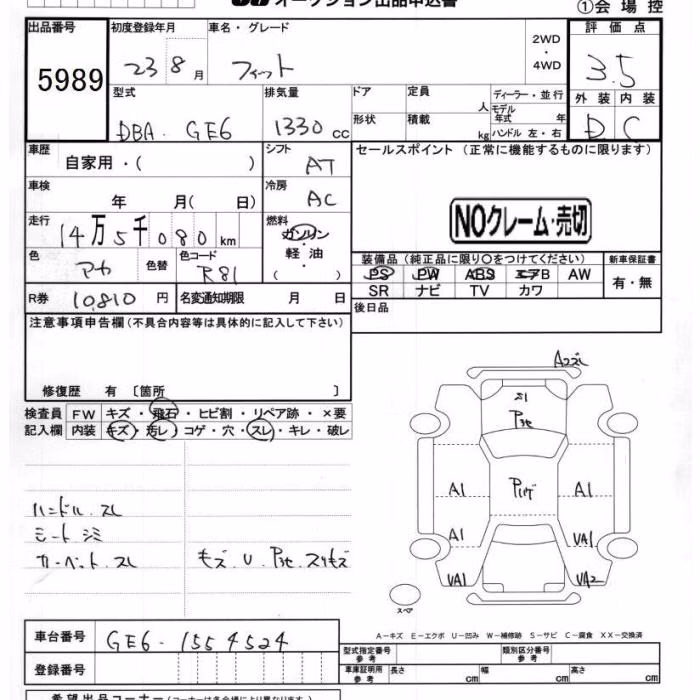 オークション出品申込書 ①会場控
出品番号 初度登録年月 車名・グレード 評価点
5989 23 8 月 フィット 2WD・4WD 3.5
型式 排気量 ドア 定員 人 ディーラー・並行 外装 内装
DBA-GE6 1330 cc 形状 積載 kg モデル年式 年 ハンドル 左・右 D C
車歴 自家用・( ) シフト AT セールスポイント (正常に機能するものに限ります)
車検 年 月( 日) 冷房 AC
NOクレーム・売切
走行 14万5千080km 燃料 ガソリン・軽油 ( )
色 アカ 色替 色コード R81
装備品(純正品に限り○をつけてください) 新車保証書
PS PW ABS エアB AW 有・無
SR ナビ TV カワ
R券 10,810 円 名変通知期限 月 日
後日品
注意事項申告欄(不具合内容等は具体的に記入して下さい)
修復歴 有 〔箇所 〕
検査員 FW キズ・飛石・ヒビ割・リペア跡・×要
記入欄 内装 キズ・汚レ・コゲ・穴・スレ・キレ・破レ
ハンドル スレ
シート シミ
カーペット スレ
キズ U P3セ スリキズ
A2スレ
S1
P3セ
A1
Pハゲ
A1
A1
VA1
VA1
VA2
スペア
A－キズ E－エクボ U－凹み W－補修跡 S－サビ C－腐食 XX－交換済
車台番号 GE6-1554524
登録番号
型式指定番号 参考 類別区分番号 参考
車庫証明用 参考 長さ cm 幅 cm 高さ cm
希望出品コーナー(コーナーは各会場により異なります)